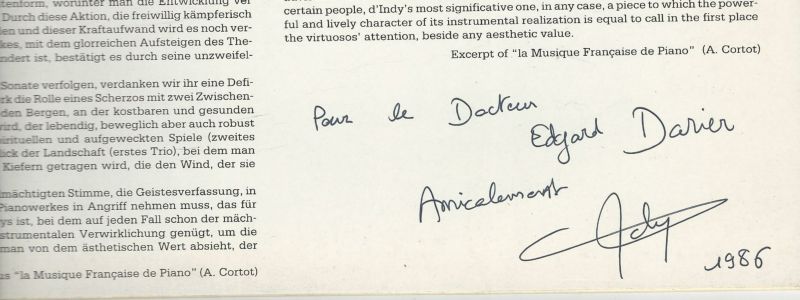 tenform, worunter man die Entwicklung der
Durch diese Aktion, die freiwillig kämpferisch
en und dieser Kraftaufwand wird es noch ver-
kes, mit dem glorreichen Aufsteigen des The-
ndert ist, bestätigt es durch seine unzweifel-
Sonate verfolgen, verdanken wir ihr eine Defi-
rk die Rolle eines Scherzos mit zwei Zwischen-
den Bergen, an der kostbaren und gesunden
ird, der lebendig, beweglich aber auch robust
irituellen und aufgeweckten Spiele (zweites
lick der Landschaft (erstes Trio), bei dem man
Kiefern getragen wird, die den Wind, der sie
mächtigten Stimme, die Geistesverfassung, in
Pianowerkes in Angriff nehmen muss, das für
ys ist, bei dem auf jeden Fall schon der mäch-
strumentalen Verwirklichung genügt, um die
man von dem ästhetischen Wert absieht, der
us “la Musique Française de Piano” (A. Cortot)
certain people, d'Indy's most significative one, in any case, a piece to which the power-
ful and lively character of its instrumental realization is equal to call in the first place
the virtuosos' attention, beside any aesthetic value.
Excerpt of “la Musique Française de Piano” (A. Cortot)
Pour le Docteur
Edgard Darier
Amicalement
1986